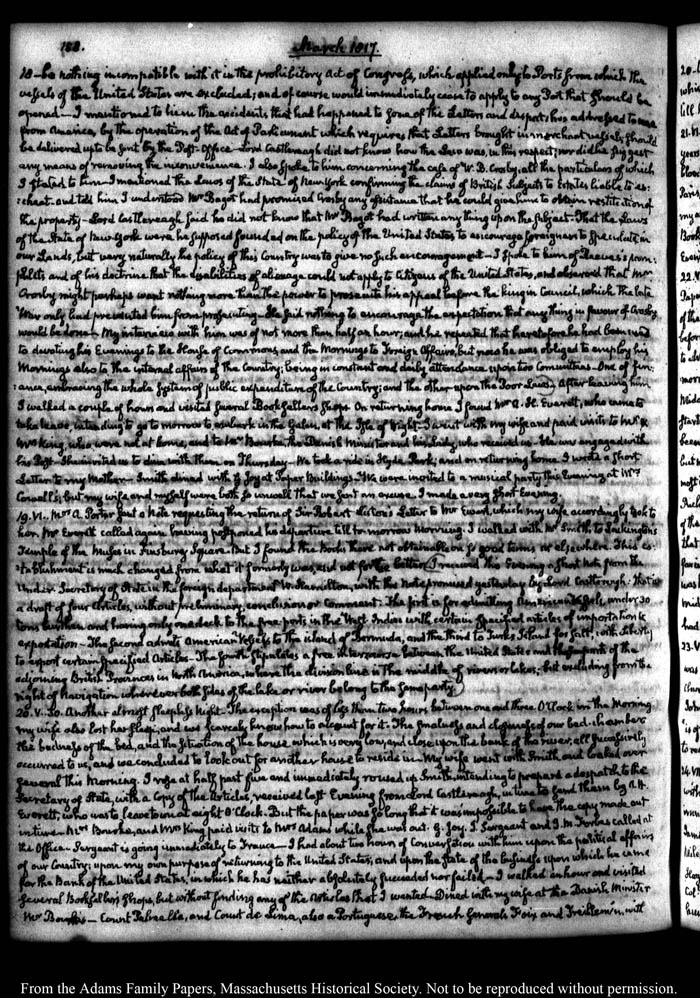 188. March 1817.
18— be nothing incompatible with it in the prohibitory Act of Congress, which applied only to Ports from which the
vessels of the United States are excluded; and of course would immediately cease to apply to any Port that should be
opened— I mentioned to him the accidents that had happened to some of the Letters and despatches addressed to me
from America, by the operation of the Act of Parliament which requires that Letters brought in merchant vessels, should
be delivered up to be sent by the Post-Office— Lord Castlereagh did not know how the Law was, in this respect; nor did he suggest
any means of removing the inconvenience. I also spoke to him concerning the case of W. B. Crosby; all the particulars of which
I stated to him— I mentioned the Laws of the State of New York confirming the claims of British Subjects to Estates liable to es:
:cheat. and told him I understood Mr Bagot had promised Crosby any assistance that he could give him to obtain restitution of
the property— Lord Castlereagh said he did not know that Mr Bagot had written any thing upon the Subject. That the Laws
of the State of New York were he supposed founded on the policy of the United States to encourage foreigners to speculate in
our Lands, but very naturally the policy of this Country was to give no such encouragement— I spoke to him of Reeves's pam:
phlets and of his doctrine that the disabilities of alienage could not apply to Citizens of the United States, and observed that Mr
Crosby might perhaps want nothing more than the power to prosecute his appeal before the king in Council, which the late
War only had prevented him from prosecuting— He said nothing to encourage the expectation that any thing in favour of Crosby
would be done— My interview with him was of not more than half an hour; and he repeated that heretofore he had been used
to devoting his Evenings to the House of Commons, and the Mornings to Foreign Affairs, but now he was obliged to employ his
Mornings also to the internal affairs of the Country; being in constant and daily attendance upon two Committees— One of fin:
:ance, embracing the whole System of public expenditure of the Country; and the other upon the Poor Laws. After leaving him
I walked a couple of hours and visited several Booksellers Shops. On returning home I found Mr A. H. Everett, who came to
take leave, intending to go to morrow to embark in the Galen, at the Isle of Wight. I went with my wife and paid visits to Mr &
Mrs King, who were not at home, and to Mr Bourke the Danish Minister and his Lady, who received us. He was engaged with
his Post— He invited us to dine with them on Thursday— We took a ride in Hyde Park; and on returning home I wrote a short
Letter to my Mother— Smith dined with G Joy at Paper Buildings. We were invited to a musical party this Evening at Mrs
but my wife and myself were both so unwell that we sent an excuse. I made a very short Evening.
19. VI. Mrs A. Porter sent a Note requesting the return of Sir Robert Liston's Letter to Mr which my wife accordingly took to
her. Mr Everett called again having postponed his departure till to-morrow Morning. I walked with Mr Smith to Lackington's
Temple of the Muses in Finsbury Square. But I found the books here not obtainable on so good terms as elsewhere. This es:
:tablishment is much changed from what it formerly was, and not for the better. I received this Evening a short Note from the
Under Secretary of State in the foreign department W. Hamilton, with the Note promised yesterday by Lord Castlereagh. That is
a draft of four Articles, without preliminary, conclusion or comment. The first is for admitting American Vessels, under 30
tons burthen and having only one deck to the free ports in the West Indies with certain specified articles of importation &
exportation— The second admits American Vessels to the island of Bermuda, and the third to Turks Island for Salt; with liberty
to export certain specified Articles— The fourth stipulates a free intercourse between the United States and the part of the
adjoining British Provinces in North America, where the division line is the middle of rivers or lakes; but excluding from the
right of Navigation wherever both sides of the lake or river belong to the same party.
20. V. 30. Another almost sleepless Night. The exception was of less than two hours between one and three O'Clock in the Morning.
my wife also lost her sleep, and we scarcely know how to account for it. The smallness and closeness of our bed-chamber
the badness of the bed, and the situation of the house which is very low, and close upon the bank of the river, all successively
occurred to us, and we concluded to look out for another house to reside in. My wife went with Smith and looked over
several this Morning. I rose at half past five and immediately roused up Smith, intending to prepare a despatch to the
Secretary of State, with a Copy of the Articles, received last Evening from Lord Castlereagh, in time to send them by A. H.
Everett, who was to leave town at eight O'Clock. But the paper was so long that it was impossible to have the copy made out
in time. Mrs Bourke, and Mrs King paid visits to Mrs Adams while she was out. G. Joy, J. Sergeant and J. M. Forbes called at
the Office— Sergeant is going immediately to France— I had about two hours of conversation with him upon the political affairs
of our Country; upon my own purpose of returning to the United States; and upon the state of the business upon which he came
for the Bank of the United States, in which he has neither absolutely succeeded nor failed— I walked an hour and visited
several Booksellers Shops, but without finding any of the Articles that I wanted— Dined with my wife at the Danish Minister
Mr Bourke's— Count Palmella, and Count de Lima, also a Portuguese, the French Generals Foix and with
From the Adams Family Papers, Massachusetts Historical Society. Not to be reproduced without permission.